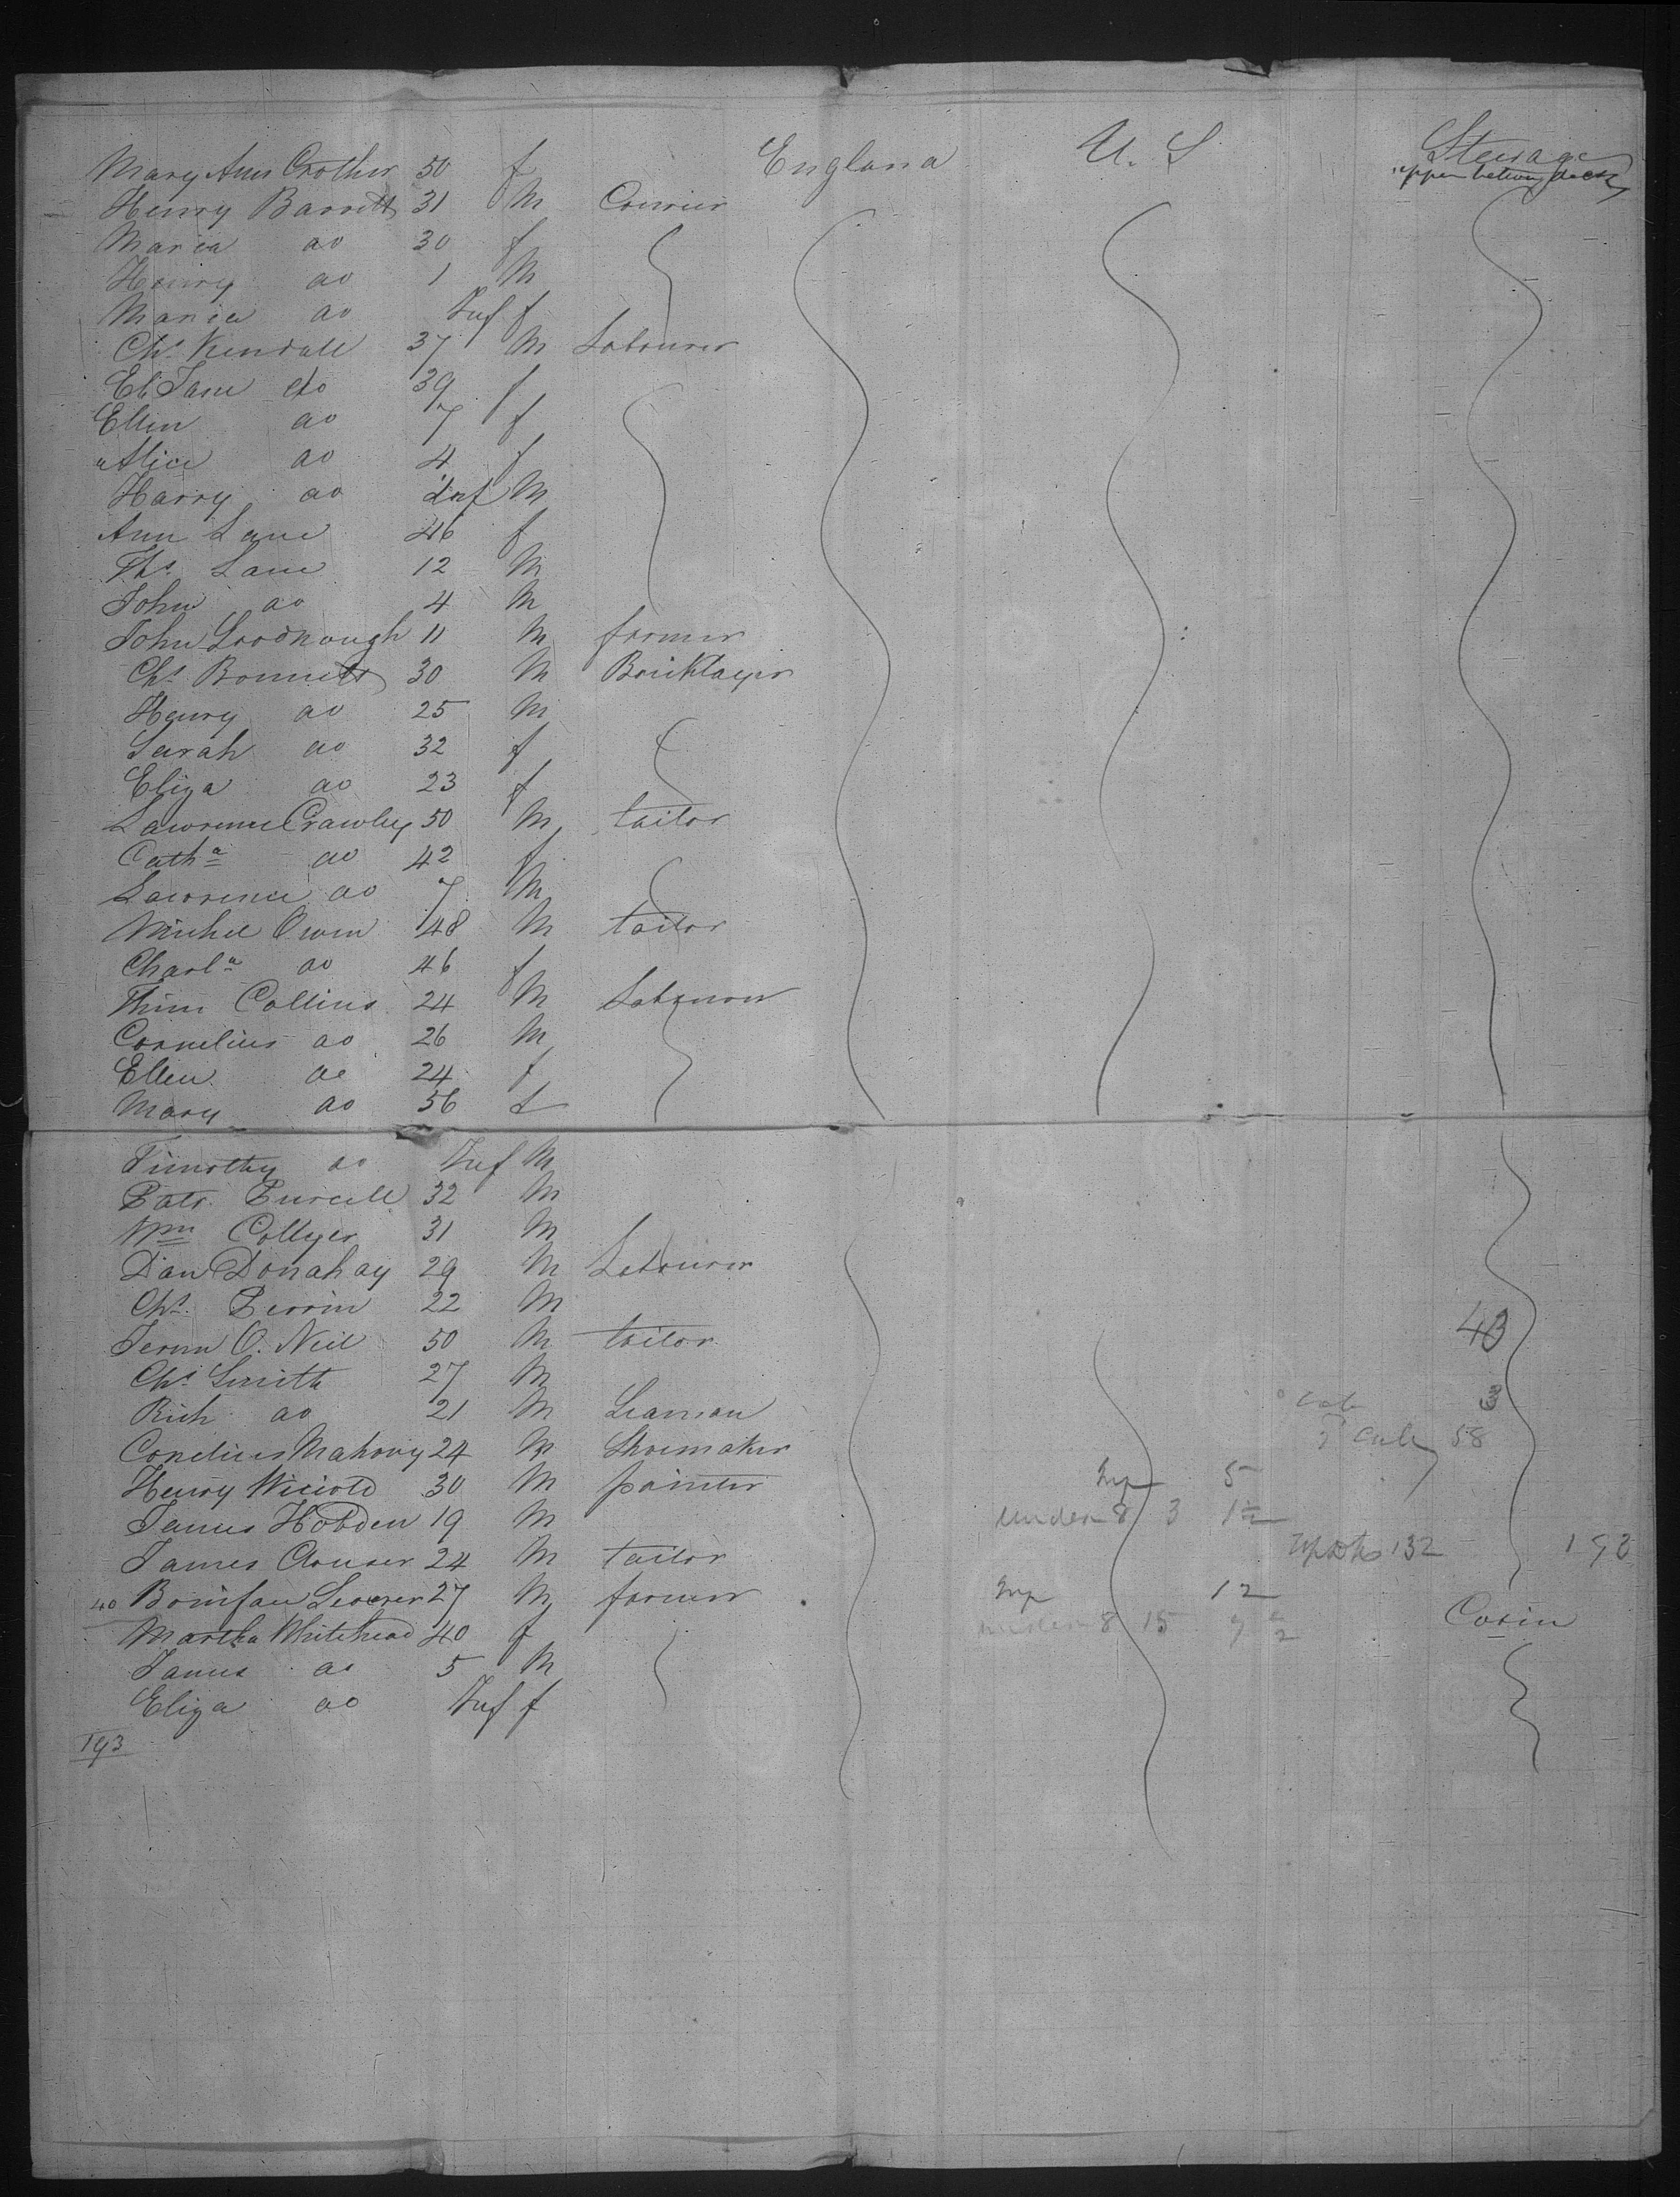 Mary Ann Crother 50 f England U. S Steerage
upper between decks
Henry Barrett 31 M Courier
Maria do 30 f
Henry do 1 M
Maria do Inf f
Chs. Kendall 37 M Labourer
El. Jane do 39 f
Ellen do 7 f
Alice do 4 f
Harry do Inf M
Ann Lane 46 f
Ths. Lane 12 M
John do 4 M
John Goodnough 11 M farmer
Chs. Bonnett 30 M Bricklayer
Henry do 25 M
Sarah do 32 f
Eliza do 23 f
Lawrence Crawley 50 M tailor
Catha do 42 f
Lawrence do 7 M
Michel Owen 48 M tailor
Charla do 46 f
Collins 24 M Labourer
Cornelius do 26 M
Ellen do 24 f
Mary do 56 f
Timothy do Inf M
Patr. Purcell 32 M
Wm Collyer 31 M
Dan Donahay 29 M Labourer
Chs. Perrin 22 M
Jerem O. Neil 50 M tailor 43
Chs. Smith 27 M
Rich do 21 M Seaman
Conelius Mahony 24 M Shoemaker 2 Cab 58
Henry 30 M painter Inf 5
James Hobden 19 M under 8 3 1½
James Clouser 24 M tailor 132 193
40 Bonifau 27 M farmer Inf 12
Martha Whitehead 40 f under 8 15 7½ Cabin
James do 5 M
Eliza do Inf f
193